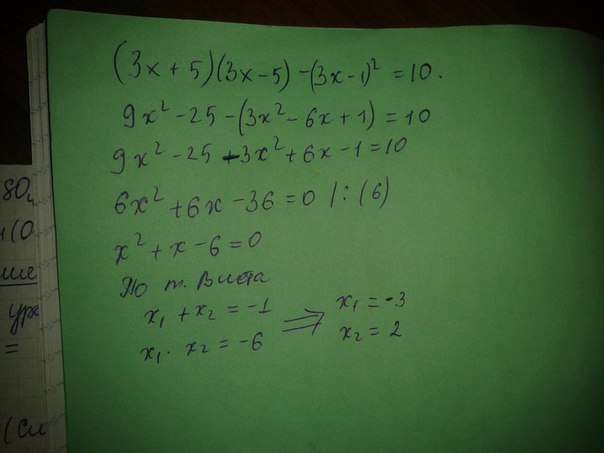 (3x+5)(3x-5)-(3x-1)² =10.
9x²-25-(3x²-6x+1)=10
9x²-25-3x²+6x-1=10
6x²+6x-36=0 |:(6)
x²+x-6=0
По т. Виета
x₁+x₂=-1 ⇒ x₁=-3
x₁·x₂=-6 x₂=2
SO₄
ше
ура
=
(Сл